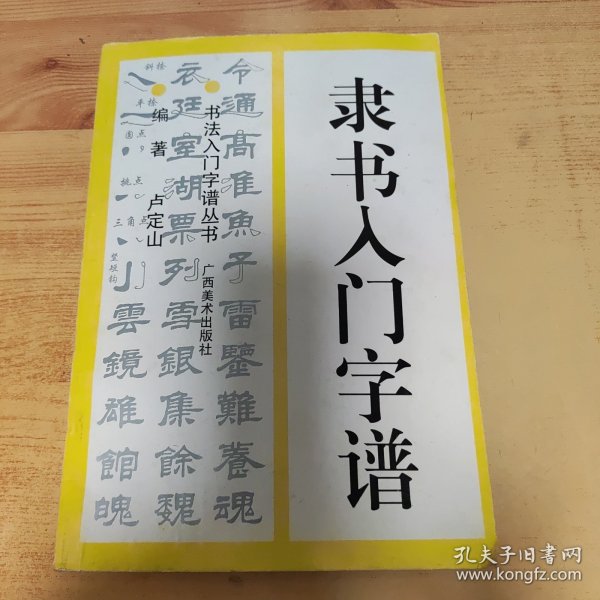 隶书入门字谱
书法入门字谱丛书
广西美术出版社
编著 卢定山
令通高淮鱼子雷鑒難養魂
衣廷室湖票列雪銀集餘魏
斜捺
平捺
圆点
挑点
三角点
竖短钩
雲鏡雄館魄
孔夫子旧书网
www.kongfz.com